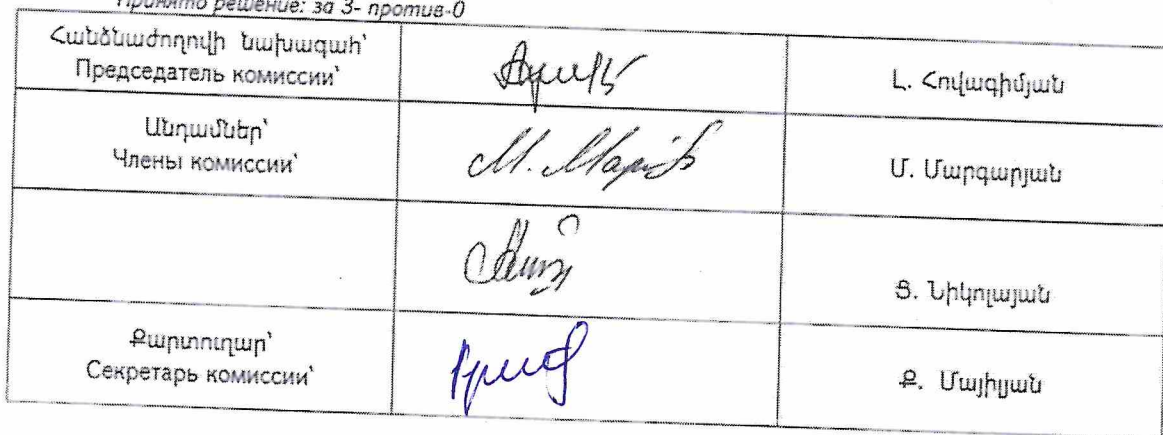 Принято решение: за 3- против-0
Հանձնաժողովի նախագահ՝
Председатель комиссии՝
Լ. Հովագիմյան
Անդամներ՝
Члены комиссии՝
Մ. Մարգարյան
Ց. Նիկոլայան
Քարտուղար՝
Секретарь комиссии՝
Ք. Մայիլյան